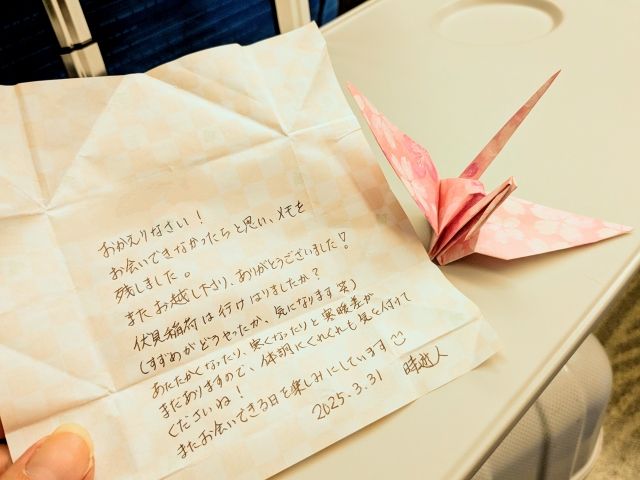 おかえりなさい!
お会いできなかったらと思い、メモを
残しました。
またお越し下さり、ありがとうございました!
伏見稲荷は行けはりましたか?
(すずめがどうやったか、気になります 笑)
あたたかくなったり、寒くなったりと寒暖差が
まだありますので、体調にくれぐれも気を付けて
くださいね!
またお会いできる日を楽しみにしています☺
2025.3.31